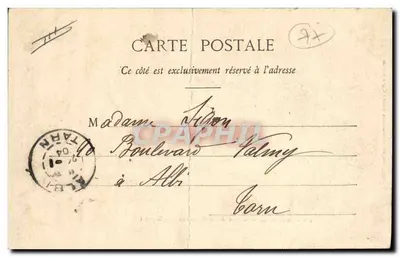 77
CARTE POSTALE
Ce côté est exclusivement réservé à l'adresse
Madame
Boulevard Valmy
à Albi
Tarn
CPAPHIL
TARN
04